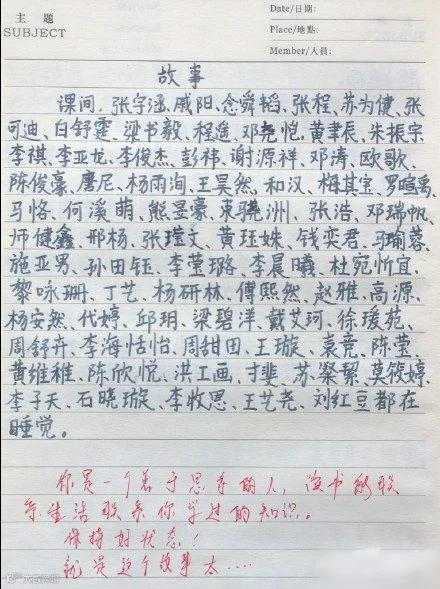 主 题
SUBJECT
Date/日期:
Place/地點:
Member/人員:
故事
课间,张宇涵、戚阳、念舜韬、张程、苏为健、张
可迪、白舒霆、梁书毅、程遥、邓尧恺、黄聿辰、朱振宗、
李祺、李亚龙、李俊杰、彭祎、谢源祥、邓涛、欧歌、
陈俊豪、唐尼、杨雨洵、王昊然、和汉、梅其宝、罗暄禹、
马恪、何溪萌、熊旻豪、束骁洲、张浩、邓瑞帆、
师健鑫、邢杨、张瑾文、黄珏姝、钱奕君、马瑜蓉、
施亚男、孙田钰、李莹璐、李晨曦、杜宛忻宜、
黎咏珊、丁艺、杨研林、傅熙然、赵雅、高源、
杨安然、代婷、邱玥、梁碧洋、戴艾珂、徐瑗苑、
周舒卉、李海怡、周甜田、王璇、袁竞、陈莹、
黄维稚、陈欣悦、洪工画、苏粲絜、莫筱婷、
李子天、石晓璇、李牧思、王艺尧、刘红豆都在
睡觉。
你是一个善于思考的人,读书能联
系生活联系你学过的知识。
保持好状态!
就是这个故事太....